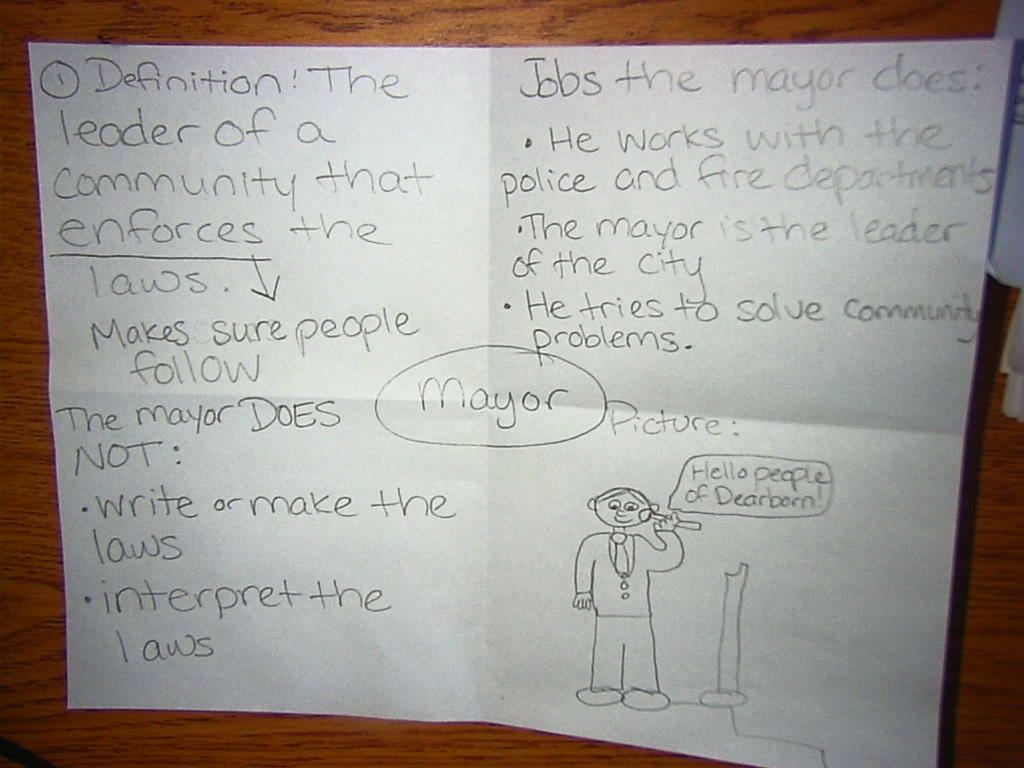 ① Definition: The
leader of a
community that
enforces the
laws.
Makes sure people
follow
Jobs the mayor does:
• He works with the
police and fire departments
• The mayor is the leader
of the city
• He tries to solve community
problems.
Mayor
The mayor DOES
NOT:
• write or make the
laws
• interpret the
laws
Picture:
Hello people
of Dearborn!